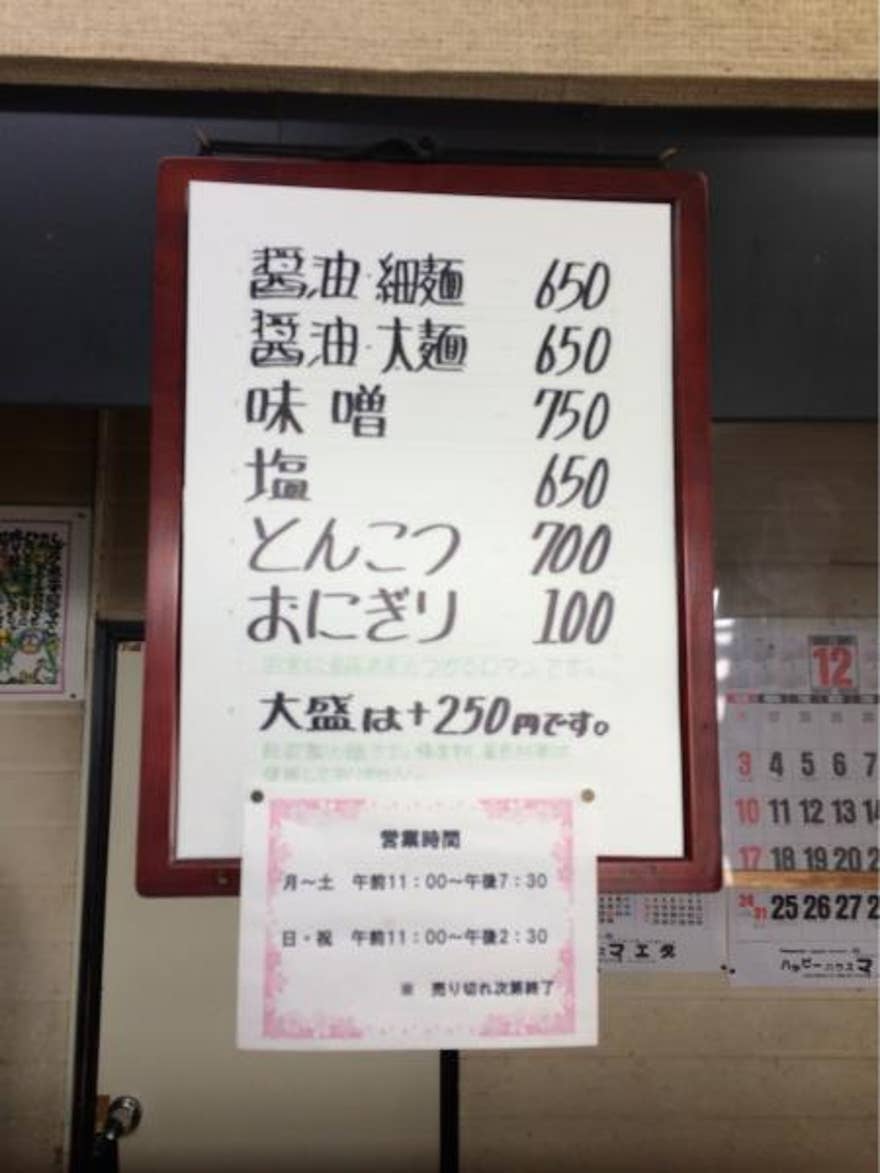 醤油・細麺 650
醤油・太麺 650
味噌 750
塩 650
とんこつ 700
おにぎり 100
大盛は+250円です。
営業時間
月~土 午前11:00~午後7:30
日・祝 午前11:00~午後2:30
※ 売り切れ次第終了
12
3 4 5 6 7
10 11 12 13 14
17 18 19 20 2
24 31 25 26 27 2
マエダ
ハッピーハウスマ